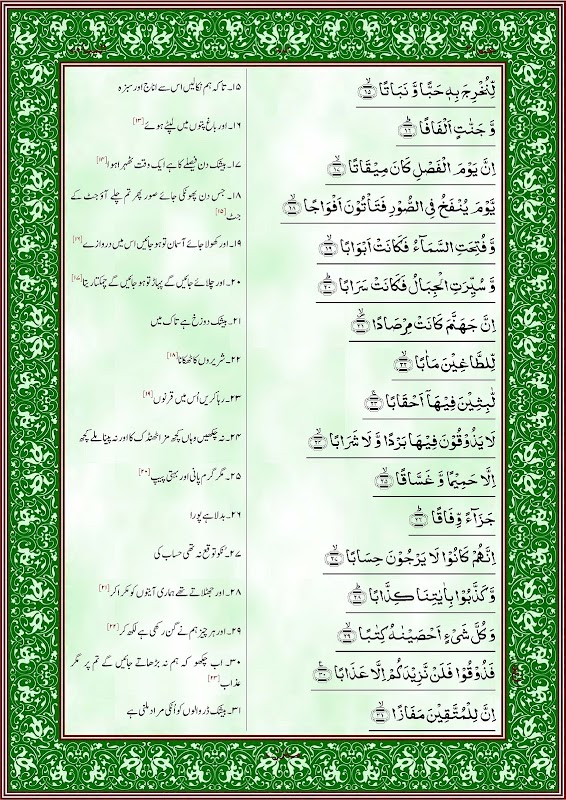 لِّنُخۡرِجَ بِهٖ حَبًّا وَّ نَبَاتًا ﴿۱۵﴾
۱۵۔ تاکہ ہم نکالیں اس سے اناج اور سبزہ
وَّ جَنّٰتٍ اَلۡفَافًا ﴿۱۶﴾
۱۶۔ اور باغ پتوں میں لپٹے ہوئے [۱۳]
اِنَّ یَوۡمَ الۡفَصۡلِ کَانَ مِیۡقَاتًا ﴿۱۷﴾
۱۷۔ بیشک دن فیصلے کا ہے ایک وقت ٹھہرا ہوا [۱۴]
یَّوۡمَ یُنۡفَخُ فِی الصُّوۡرِ فَتَاۡتُوۡنَ اَفۡوَاجًا ﴿۱۸﴾
۱۸۔ جس دن پھونکی جائے صور پھر تم چلے آؤ جٹ کے
جٹ [۱۵]
وَّ فُتِحَتِ السَّمَآءُ فَکَانَتۡ اَبۡوَابًا ﴿۱۹﴾
۱۹۔ اور کھولا جائے آسمان تو ہو جائیں اس میں دروازے [۱۶]
وَّ سُیِّرَتِ الۡجِبَالُ فَکَانَتۡ سَرَابًا ﴿۲۰﴾
۲۰۔ اور چلائے جائیں گے پہاڑ تو ہو جائیں گے چمکتا ریتا [۱۷]
اِنَّ جَهَنَّمَ کَانَتۡ مِرۡصَادًا ﴿۲۱﴾
۲۱۔ بیشک دوزخ ہے تاک میں
لِّلطَّاغِیۡنَ مَاٰبًا ﴿۲۲﴾
۲۲۔ شریروں کا ٹھکانا [۱۸]
لّٰبِثِیۡنَ فِیۡهَاۤ اَحۡقَابًا ﴿۲۳﴾
۲۳۔ رہا کریں اُس میں قرنوں [۱۹]
لَا یَذُوۡقُوۡنَ فِیۡهَا بَرۡدًا وَّ لَا شَرَابًا ﴿۲۴﴾
۲۴۔ نہ چکھیں وہاں کچھ مزا ٹھنڈک کا اور نہ پینا ملے کچھ
اِلَّا حَمِیۡمًا وَّ غَسَّاقًا ﴿۲۵﴾
۲۵۔ مگر گرم پانی اور بہتی پیپ [۲۰]
جَزَآءً وِّفَاقًا ﴿۲۶﴾
۲۶۔ بدلا ہے پورا
اِنَّهُمۡ کَانُوۡا لَا یَرۡجُوۡنَ حِسَابًا ﴿۲۷﴾
۲۷۔ انکو توقع نہ تھی حساب کی
وَّ کَذَّبُوۡا بِاٰیٰتِنَا کِذَّابًا ﴿۲۸﴾
۲۸۔ اور جھٹلاتے تھے ہماری آیتوں کو مکرا کر [۲۱]
وَ کُلَّ شَیۡءٍ اَحۡصَیۡنٰهُ کِتٰبًا ﴿۲۹﴾
۲۹۔ اور ہر چیز ہم نے گن رکھی ہے لکھ کر [۲۲]
فَذُوۡقُوۡا فَلَنۡ نَّزِیۡدَکُمۡ اِلَّا عَذَابًا ﴿۳۰﴾
۳۰۔ اب چکھو کہ ہم نہ بڑھاتے جائیں گے تم پر مگر
عذاب [۲۳]
اِنَّ لِلۡمُتَّقِیۡنَ مَفَازًا ﴿۳۱﴾
۳۱۔ بیشک ڈر والوں کو اُنکی مراد ملنی ہے